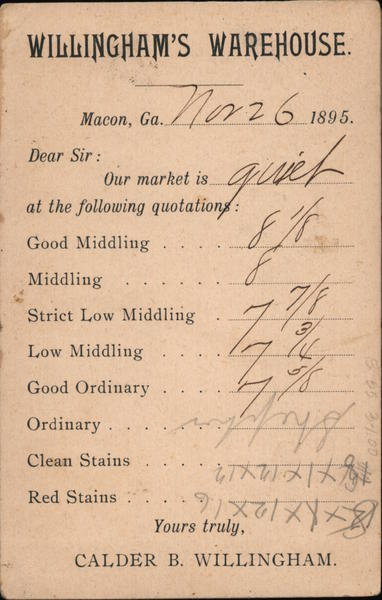 WILLINGHAM'S WAREHOUSE.
Macon, Ga. Nov 26 1895.
Dear Sir:
Our market is quiet
at the following quotations:
Good Middling . . . . 8 1/8
Middling . . . . . . 8
Strict Low Middling . 7 7/8
Low Middling . . . . 7 3/4
Good Ordinary . . . . 7 5/8
Ordinary . . . . . .
Clean Stains . . . .
Red Stains . . . . .
Yours truly,
CALDER B. WILLINGHAM.